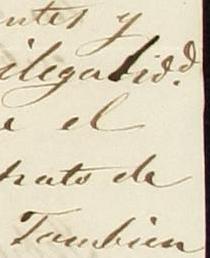 entes y
ilegalidd.
e el
trato de
Tambien